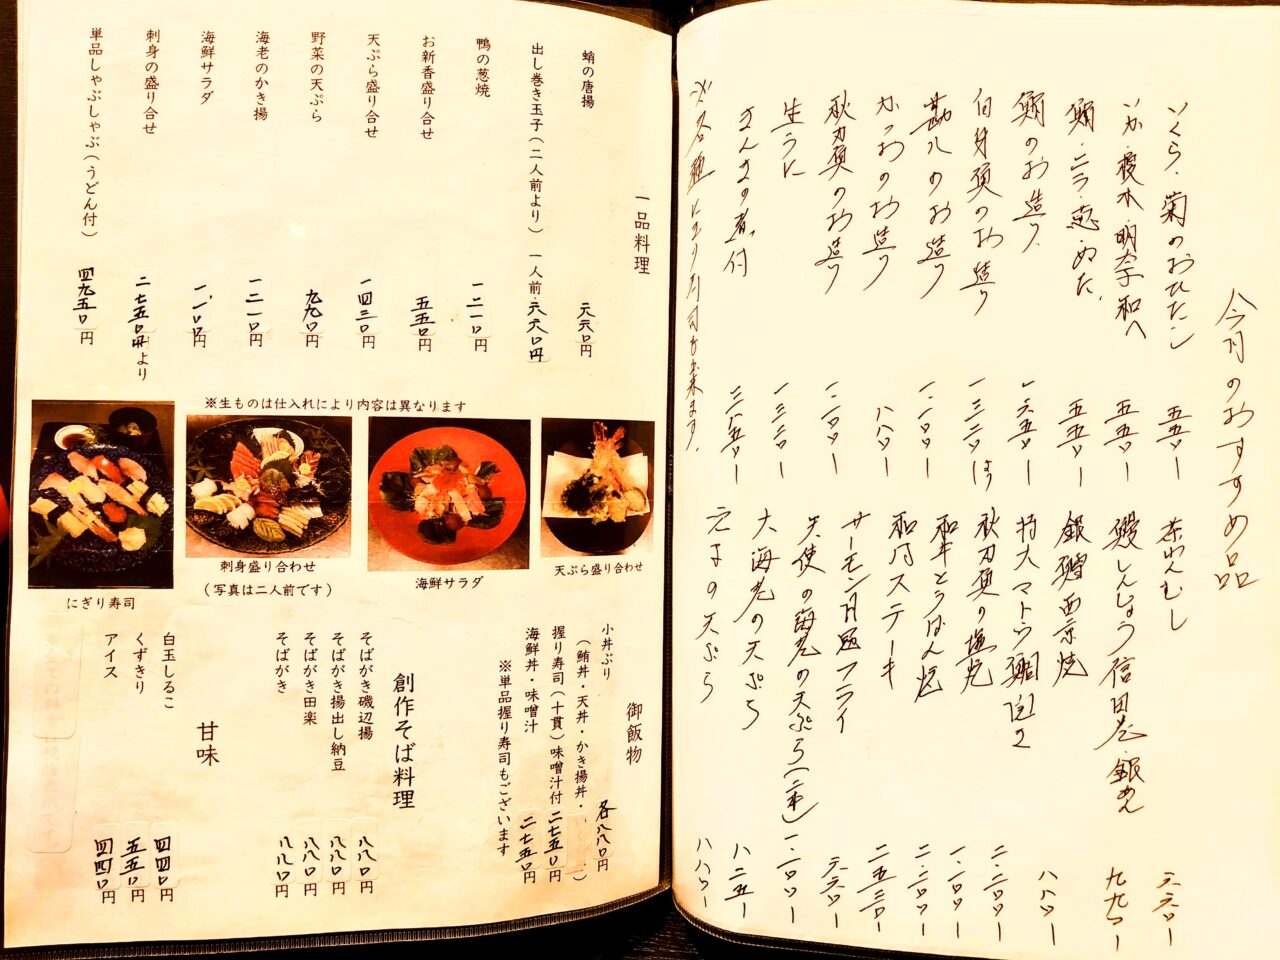 今月のおすすめ品
いくら・菊のおひたし 五五〇ー
いか・榎木・明太子和へ 五五〇ー
鮪・ニラ・葱・ぬた 五五〇ー
鮪のお造り 一六五〇ー
白身魚のお造り 一三二〇ー
勘八のお造り 一一〇〇ー
かつおのお造り 八八〇ー
秋刀魚のお造り 一一〇〇ー
生うに
さんまの煮付
※各種にぎり寿司出来ます。
茶わんむし 六六〇ー
鰻しんじょう信田巻・銀あん 九九〇ー
銀鱈西京焼
特大マトウ鯛 八八〇ー
秋刀魚の塩焼
和牛とうばん焼
和風ステーキ
サーモン月見フライ
天使の海老の天ぷら(二本) 一一〇〇ー
大海老の天ぷら 八二五ー
八八〇ー
一品料理
蛸の唐揚 六六〇円
出し巻き玉子(二人前より) 一人前・六六〇円
鴨の葱焼 一二一〇円
お新香盛り合せ 五五〇円
天ぷら盛り合せ 一四三〇円
野菜の天ぷら 九九〇円
海老のかき揚 一二一〇円
海鮮サラダ 一一〇〇円
刺身の盛り合せ 二七五〇円より
単品しゃぶしゃぶ(うどん付) 四九五〇円
※生ものは仕入れにより内容は異なります
にぎり寿司
刺身盛り合わせ
(写真は二人前です)
海鮮サラダ
天ぷら盛り合わせ
御飯物
小丼ぶり 各八八〇円
(鮪丼・天丼・かき揚丼・
握り寿司(十貫)味噌汁付 二七五〇円
海鮮丼・味噌汁 二七五〇円
※単品握り寿司もございます
創作そば料理
そばがき磯辺揚 八八〇円
そばがき揚出し納豆 八八〇円
そばがき田楽 八八〇円
そばがき 八八〇円
甘味
白玉しるこ 四四〇円
くずきり 五五〇円
アイス 四四〇円